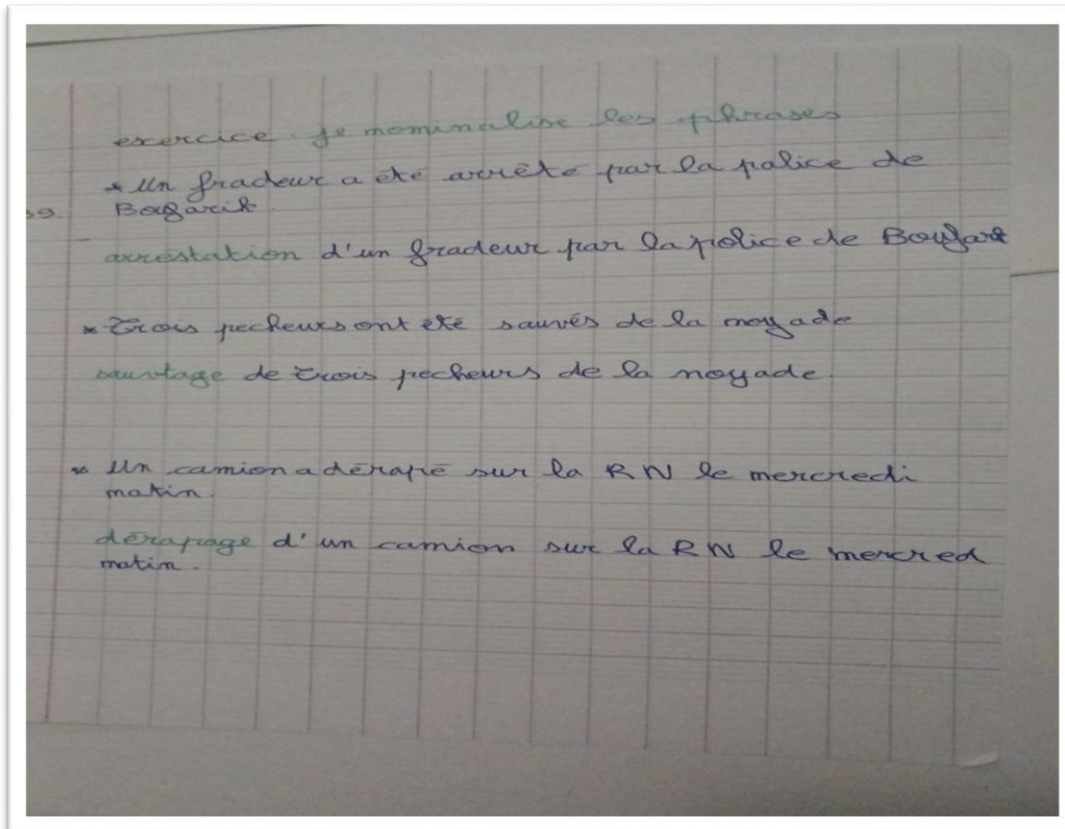 exercice. je nominalise les phrases
* Un fradeur a été arrêté par la police de
Bogarik
arrestation d'un fradeur par la police de
* Trois pecheurs ont été sauvés de la noyade
sauvtage de trois pecheurs de la noyade.
* Un camion a dérapé sur la RN le mercredi
matin.
dérapage d'un camion sur la RN le mercred
matin.